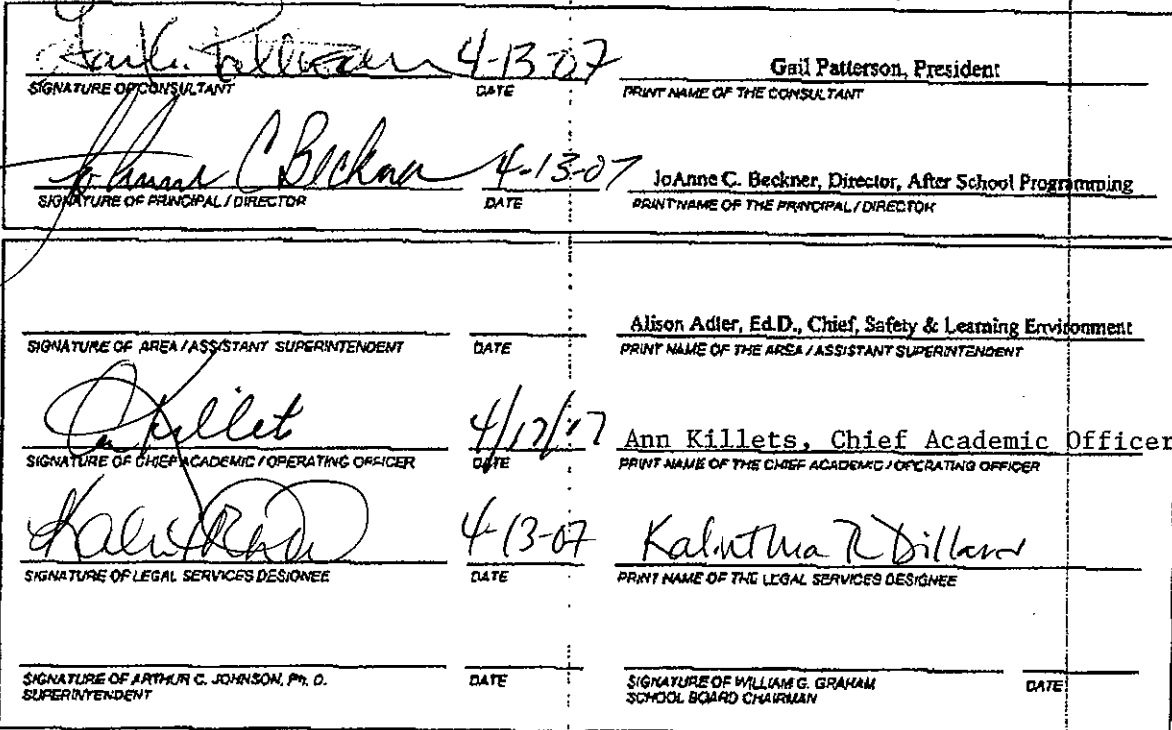 4-13-07 Gail Patterson, President
SIGNATURE OF CONSULTANT DATE PRINT NAME OF THE CONSULTANT
JoAnne C Beckner 4-13-07 JoAnne C. Beckner, Director, After School Programming
SIGNATURE OF PRINCIPAL / DIRECTOR DATE PRINT NAME OF THE PRINCIPAL / DIRECTOR
Alison Adler, Ed.D., Chief, Safety & Learning Environment
SIGNATURE OF AREA / ASSISTANT SUPERINTENDENT DATE PRINT NAME OF THE AREA / ASSISTANT SUPERINTENDENT
Killets Ann Killets, Chief Academic Officer
SIGNATURE OF CHIEF ACADEMIC / OPERATING OFFICER DATE PRINT NAME OF THE CHIEF ACADEMIC / OPERATING OFFICER
4-13-07 Kalinthia R Dillard
SIGNATURE OF LEGAL SERVICES DESIGNEE DATE PRINT NAME OF THE LEGAL SERVICES DESIGNEE
SIGNATURE OF ARTHUR C. JOHNSON, Ph. D. DATE SIGNATURE OF WILLIAM G. GRAHAM DATE
SUPERINTENDENT SCHOOL BOARD CHAIRMAN